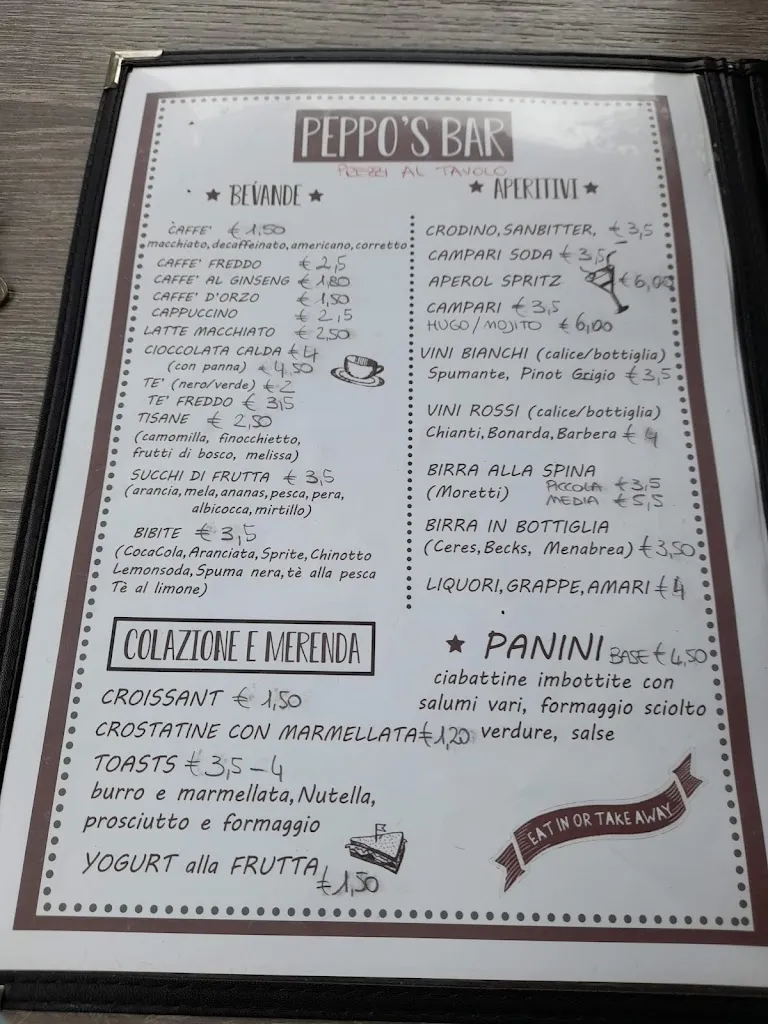 PEPPO'S BAR
PREZZI AL TAVOLO
★ BEVANDE ★
CAFFE' € 1,50
macchiato, decaffeinato, americano, corretto
CAFFE' FREDDO € 2,5
CAFFE' AL GINSENG € 1,80
CAFFE' D'ORZO € 1,50
CAPPUCCINO € 2,5
LATTE MACCHIATO € 2,50
CIOCCOLATA CALDA € 4
(con panna) € 4,50
TE' (nero/verde) € 2
TE' FREDDO € 3,5
TISANE € 2,50
(camomilla, finocchietto,
frutti di bosco, melissa)
SUCCHI DI FRUTTA € 3,5
(arancia, mela, ananas, pesca, pera,
albicocca, mirtillo)
BIBITE € 3,5
(CocaCola, Aranciata, Sprite, Chinotto
Lemonsoda, Spuma nera, tè alla pesca
Tè al limone)
★ APERITIVI ★
CRODINO, SANBITTER, € 3,5
CAMPARI SODA € 3,5
APEROL SPRITZ € 6,00
CAMPARI € 3,5
HUGO / MOJITO € 6,00
VINI BIANCHI (calice/bottiglia)
Spumante, Pinot Grigio € 3,5
VINI ROSSI (calice/bottiglia)
Chianti, Bonarda, Barbera € 4
BIRRA ALLA SPINA
(Moretti) PICCOLA € 3,5
MEDIA € 5,5
BIRRA IN BOTTIGLIA
(Ceres, Becks, Menabrea) € 3,50
LIQUORI, GRAPPE, AMARI € 4
COLAZIONE E MERENDA
CROISSANT € 1,50
CROSTATINE CON MARMELLATA € 1,20
TOASTS € 3,5 - 4
burro e marmellata, Nutella,
prosciutto e formaggio
YOGURT alla FRUTTA
€ 1,50
★ PANINI BASE € 4,50
ciabattine imbottite con
salumi vari, formaggio sciolto
verdure, salse
EAT IN OR TAKE AWAY